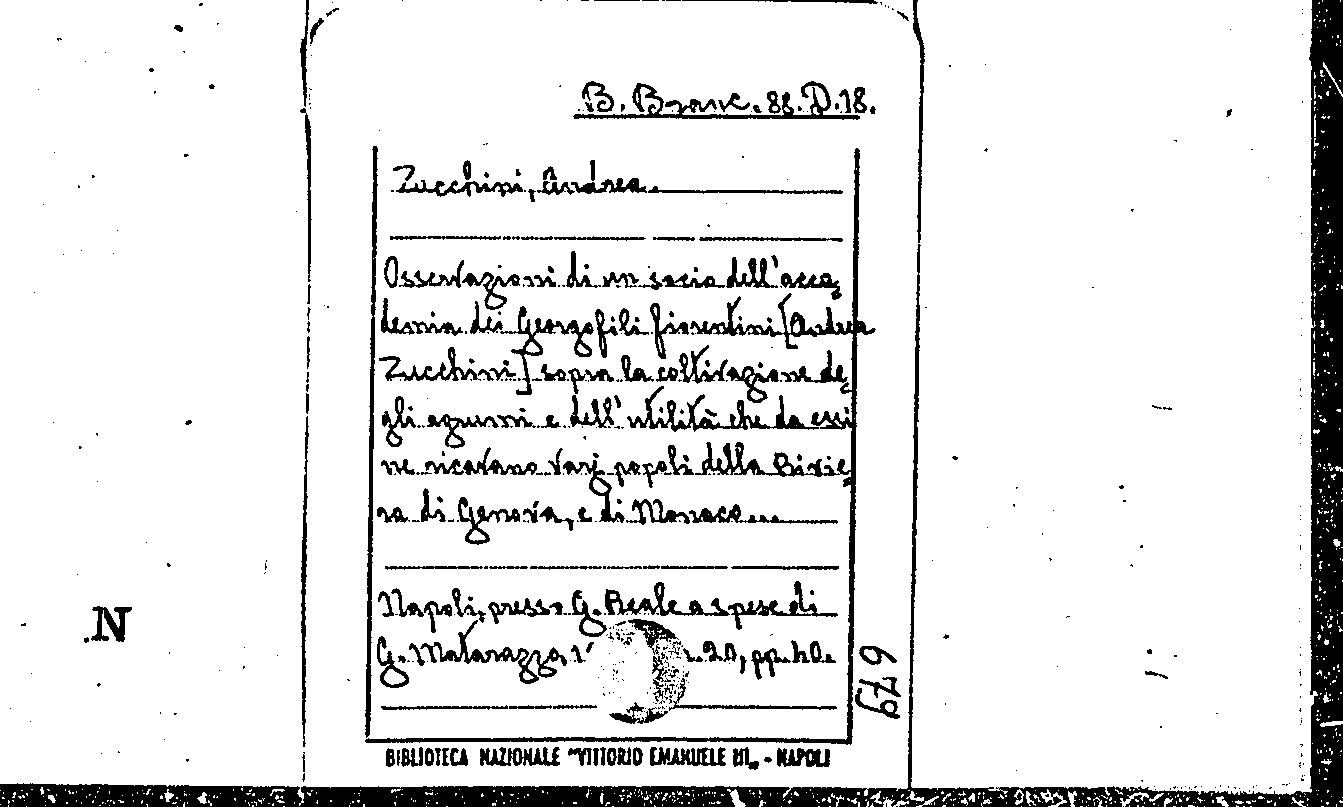 B. Branc. 88. D. 18.
Zucchini, Andrea.
Osservazioni di un socio dell'acca=
demia dei Georgofili fiorentini [Andrea
Zucchini] sopra la coltivazione de=
gli agrumi e dell'utilità che da essi
ne ricavano varj popoli della Rivie=
ra di Genova, e di Monaco...
N
Napoli, presso G. Reale a spese di
G. Matarazzo, 1 20, pp. 40.
679
BIBLIOTECA NAZIONALE "VITTORIO EMANUELE III" - NAPOLI